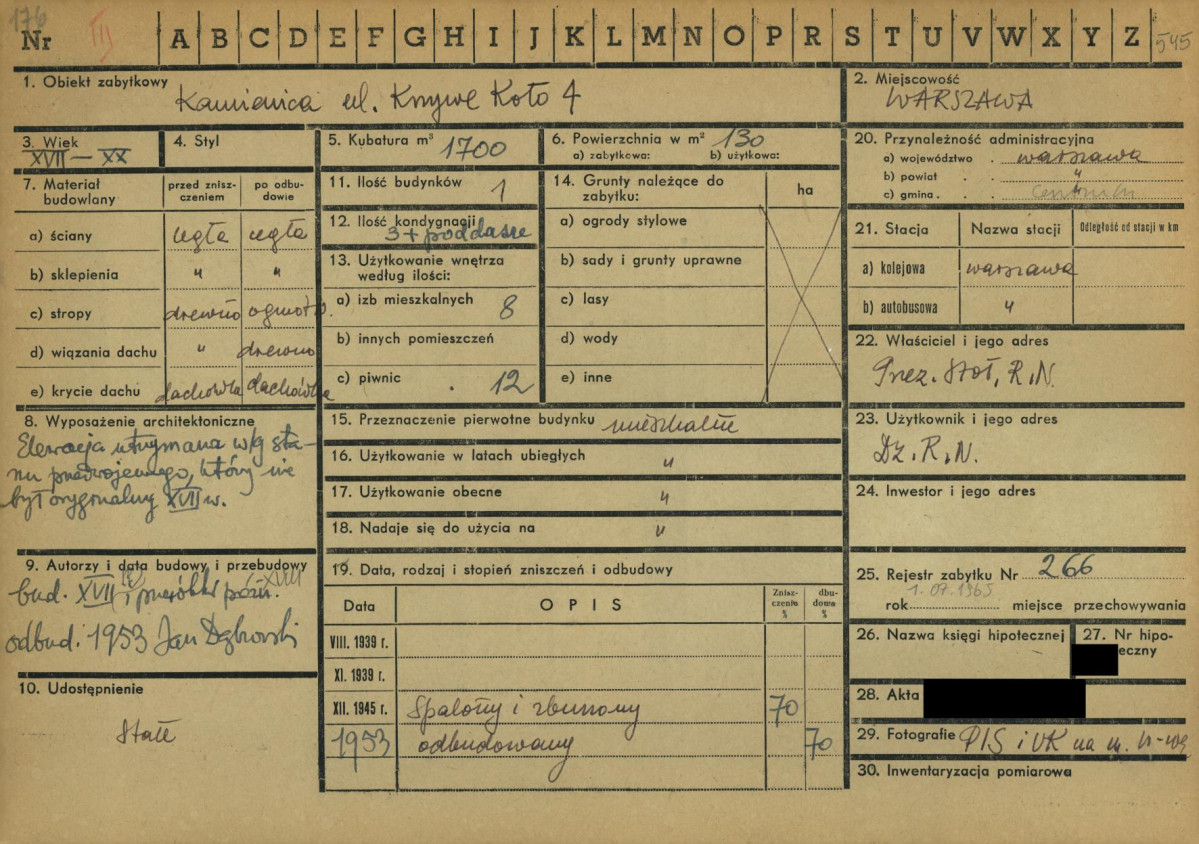 176
Nr III A B C D E F G H I J K L M N O P R S T U V W X Y Z 545
1. Obiekt zabytkowy
Kamienica ul. Krzywe Koło 4
2. Miejscowość
WARSZAWA
3. Wiek
XVII – XX
4. Styl
5. Kubatura m³ 1700
6. Powierzchnia w m² 130
a) zabytkowa: b) użytkowa:
20. Przynależność administracyjna
a) województwo . warszawa
b) powiat . . "
c) gmina . . Centrum
7. Materiał budowlany
przed zniszczeniem
po odbudowie
a) ściany cegła cegła
b) sklepienia " "
c) stropy drewno ogniotr.
d) wiązania dachu " drewno
e) krycie dachu dachówka dachówka
11. Ilość budynków 1
12. Ilość kondygnacji
3 + poddasze
13. Użytkowanie wnętrza
według ilości:
a) izb mieszkalnych 8
b) innych pomieszczeń
c) piwnic . 12
14. Grunty należące do
zabytku:
ha
a) ogrody stylowe
b) sady i grunty uprawne
c) lasy
d) wody
e) inne
21. Stacja Nazwa stacji Odległość od stacji w km
a) kolejowa warszawa
b) autobusowa "
22. Właściciel i jego adres
Prez. Stoł. R.N.
8. Wyposażenie architektoniczne
Elewacja utrzymana w/g sta-
nu przedwojennego, który nie
był oryginalny XVII w.
15. Przeznaczenie pierwotne budynku mieszkalne
16. Użytkowanie w latach ubiegłych "
17. Użytkowanie obecne "
18. Nadaje się do użycia na "
23. Użytkownik i jego adres
Dz. R.N.
24. Inwestor i jego adres
9. Autorzy i data budowy i przebudowy
bud. XVII i przeróbki późn. XVIII
odbud. 1953 Jan Dąbrowski
10. Udostępnienie
Stałe
19. Data, rodzaj i stopień zniszczeń i odbudowy
Data OPIS Zniszczenia % dbudowa %
VIII. 1939 r.
XI. 1939 r.
XII. 1945 r. Spalony i zburzony 70
1953 odbudowany 70
25. Rejestr zabytku Nr 266
1.07.1965
rok miejsce przechowywania
26. Nazwa księgi hipotecznej
27. Nr hipo-
eczny
28. Akta
29. Fotografie PIS i UK na m. W-wę
30. Inwentaryzacja pomiarowa